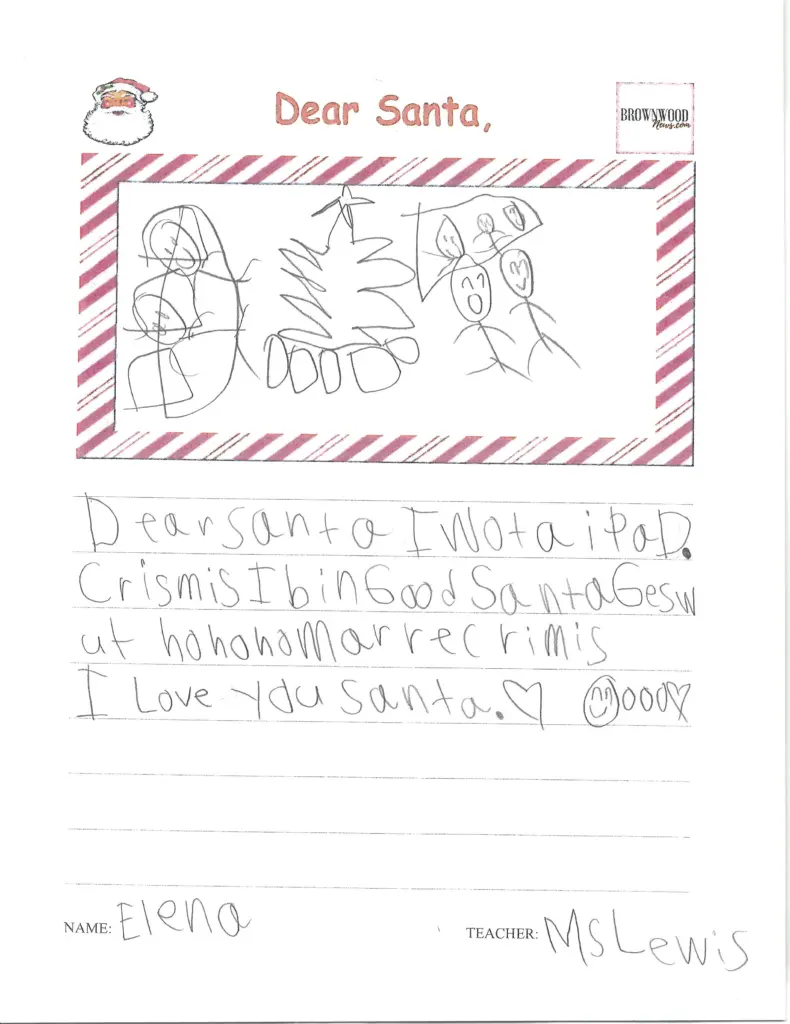 Dear Santa,
BROWNWOOD
News.com
Dear santa I Wot a ipaD.
Crismis I bin Good Santa Gesw
ut hohoho Marrre crimis
I Love you santa. ♡ ooo♡
NAME: Elena
TEACHER: Ms Lewis